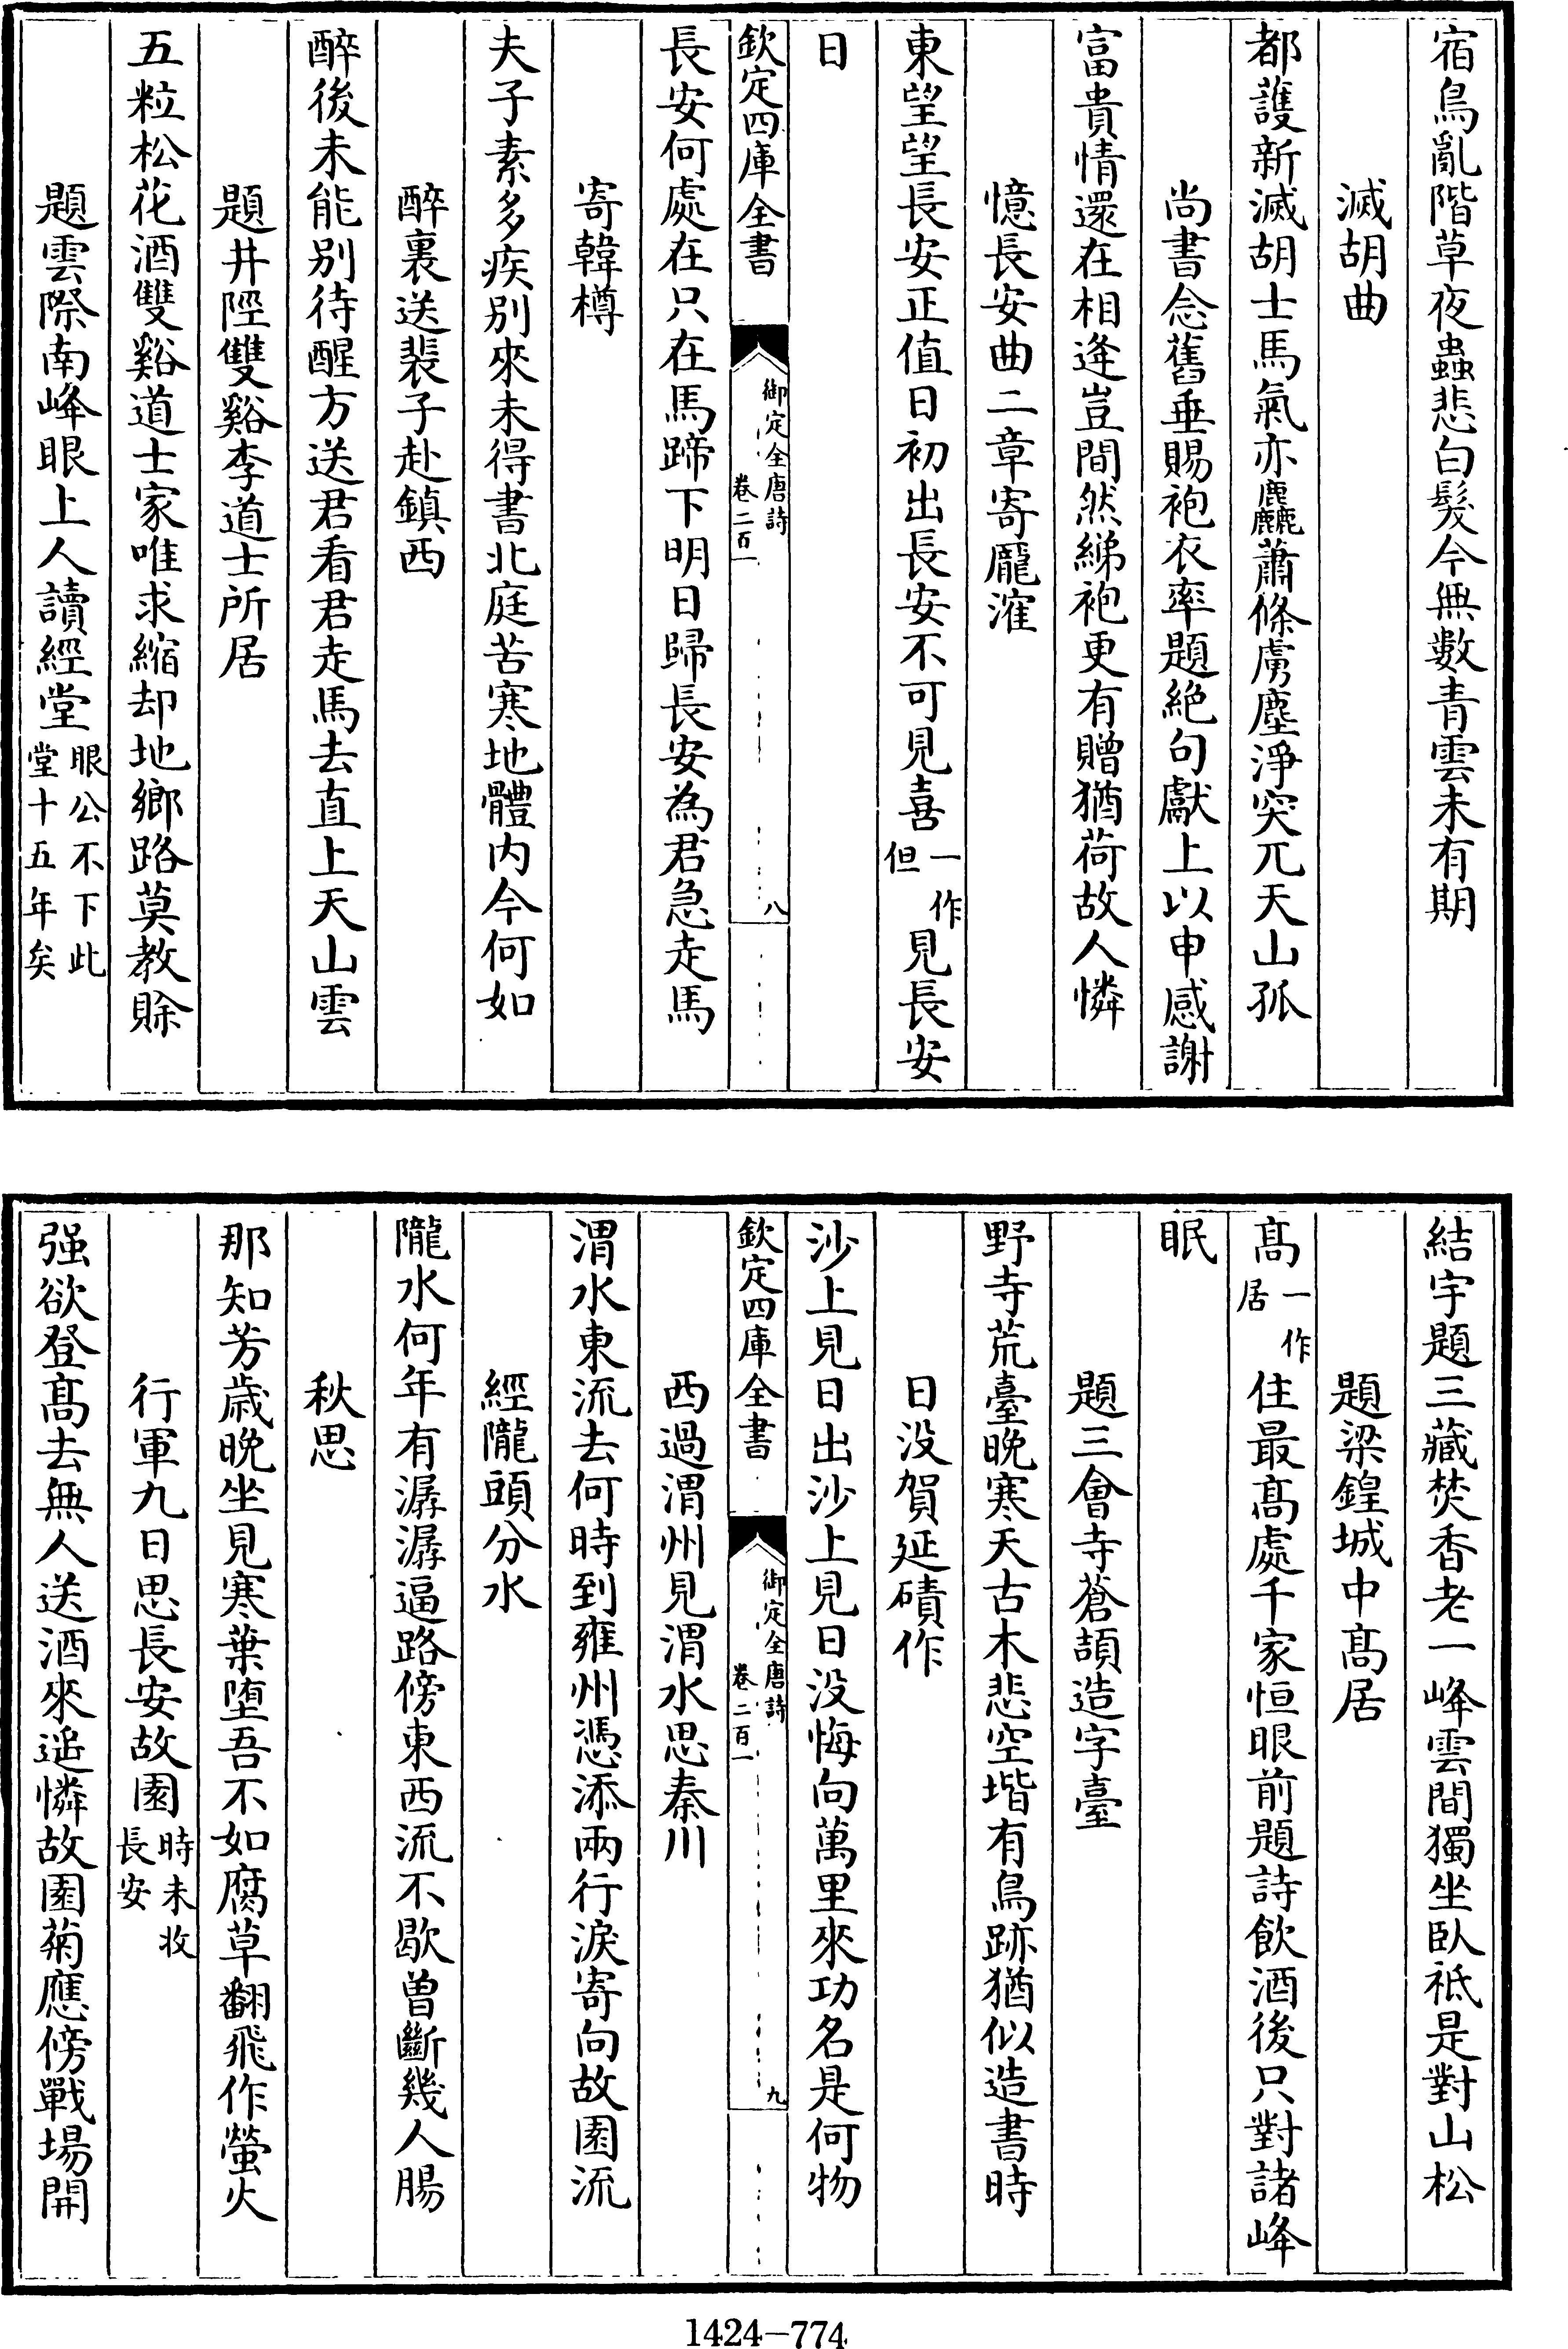 宿鳥亂階草夜蟲悲白髮今無數青雲未有期
滅胡曲
都護新滅胡士馬氣亦麤蕭條虜塵淨突兀天山孤
尚書念舊垂賜袍衣率題絶句獻上以申感謝
富貴情還在相逢豈間然綈袍更有贈猶荷故人憐
憶長安曲二章寄龎㴶
東望望長安正值日初出長安不可見喜一作但見長安
日
欽定四庫全書
御定全唐詩
卷二百一
八
長安何處在只在馬蹄下明日歸長安為君急走馬
寄韓樽
夫子素多疾别來未得書北庭苦寒地體内今何如
醉裏送裴子赴鎮西
醉後未能别待醒方送君看君走馬去直上天山雲
題井陘雙谿李道士所居
五粒松花酒雙谿道士家唯求縮却地鄉路莫教賒
題雲際南峰眼上人讀經堂眼公不下此堂十五年矣
結宇題三藏焚香老一峰雲間獨坐臥祗是對山松
題梁鍠城中髙居
髙一作居住最髙處千家恒眼前題詩飲酒後只對諸峰
眠
題三會寺蒼頡造字臺
野寺荒臺晚寒天古木悲空堦有鳥跡猶似造書時
日没賀延磧作
沙上見日出沙上見日没悔向萬里來功名是何物
欽定四庫全書
御定全唐詩
卷二百一
九
西過渭州見渭水思秦川
渭水東流去何時到雍州憑添兩行淚寄向故園流
經隴頭分水
隴水何年有潺潺逼路傍東西流不歇曾斷幾人腸
秋思
那知芳歳晚坐見寒葉墮吾不如腐草翻飛作螢火
行軍九日思長安故園時未收長安
强欲登髙去無人送酒來遥憐故園菊應傍戰場開
1424-774